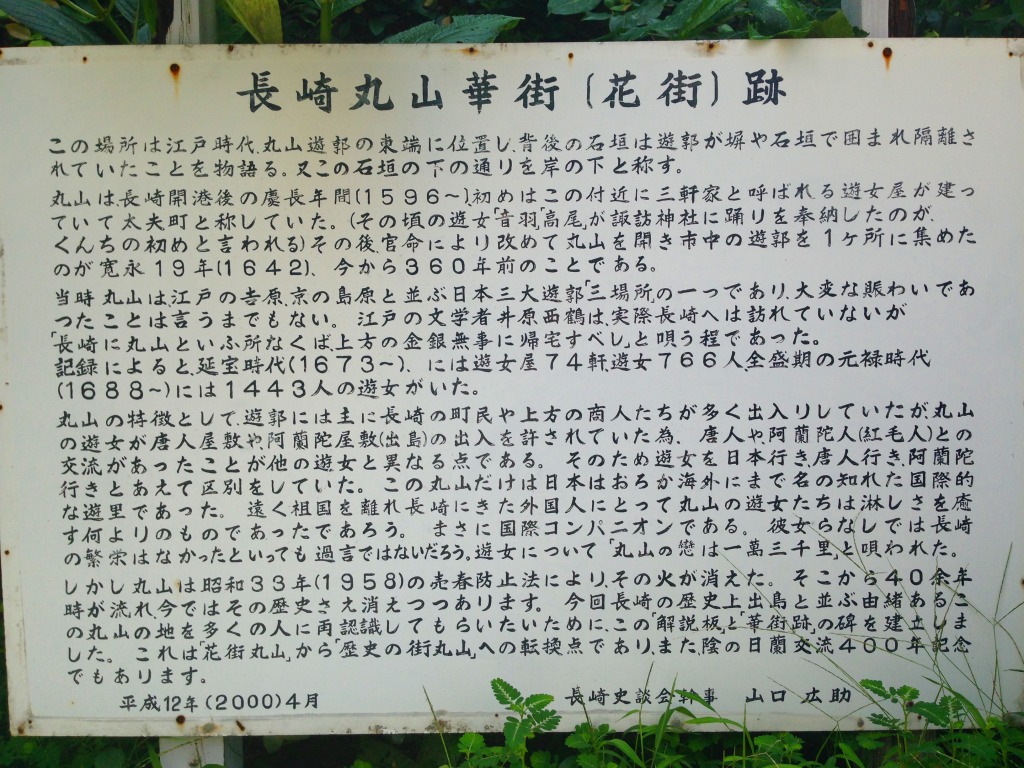 長崎丸山華街(花街)跡
この場所は江戸時代、丸山遊郭の東端に位置し、背後の石垣は遊郭が塀や石垣で囲まれ隔離さ
れていたことを物語る。又この石垣の下の通りを岸の下と称す。
丸山は長崎開港後の慶長年間(1596～)初めはこの付近に三軒家と呼ばれる遊女屋が建っ
ていて太夫町と称していた。(その頃の遊女「音羽」「高尾」が諏訪神社に踊りを奉納したのが、
くんちの初めと言われる)その後官命により改めて丸山を開き市中の遊郭を1ヶ所に集めた
のが寛永19年(1642)、今から360年前のことである。
当時丸山は江戸の吉原、京の島原と並ぶ日本三大遊郭「三場所」の一つであり、大変な賑わいであ
つたことは言うまでもない。江戸の文学者井原西鶴は、実際長崎へは訪れていないが
「長崎に丸山といふ所なくば、上方の金銀無事に帰宅すべし」と唄う程であった。
記録によると、延宝時代(1673～)、には遊女屋74軒、遊女766人、全盛期の元禄時代
(1688～)には1443人の遊女がいた。
丸山の特徴として、遊郭には主に長崎の町民や上方の商人たちが多く出入りしていたが、丸山
の遊女が唐人屋敷や阿蘭陀屋敷(出島)の出入を許されていた為、唐人や、阿蘭陀人(紅毛人)との
交流があったことが他の遊女と異なる点である。そのため遊女を日本行き、唐人行き、阿蘭陀
行きとあえて区別をしていた。この丸山だけは日本はおろか海外にまで名の知れた国際的
な遊里であった。遠く祖国を離れ長崎にきた外国人にとって丸山の遊女たちは淋しさを癒
す何よりのものであったであろう。まさに国際コンパニオンである。彼女らなしでは長崎
の繁栄はなかったといっても過言ではないだろう。遊女について「丸山の戀は一萬三千里」と唄われた。
しかし丸山は昭和33年(1958)の売春防止法により、その火が消えた。そこから40余年
時が流れ、今ではその歴史さえ消えつつあります。今回長崎の歴史上出島と並ぶ由緒あるこ
の丸山の地を多くの人に再認識してもらいたいために、この「解説板」と「華街跡」の碑を建立しま
した。これは「花街丸山」から「歴史の街丸山」への転換点であり、また、陰の日蘭交流400年記念
でもあります。
平成12年(2000)4月 長崎史談会幹事 山口広助